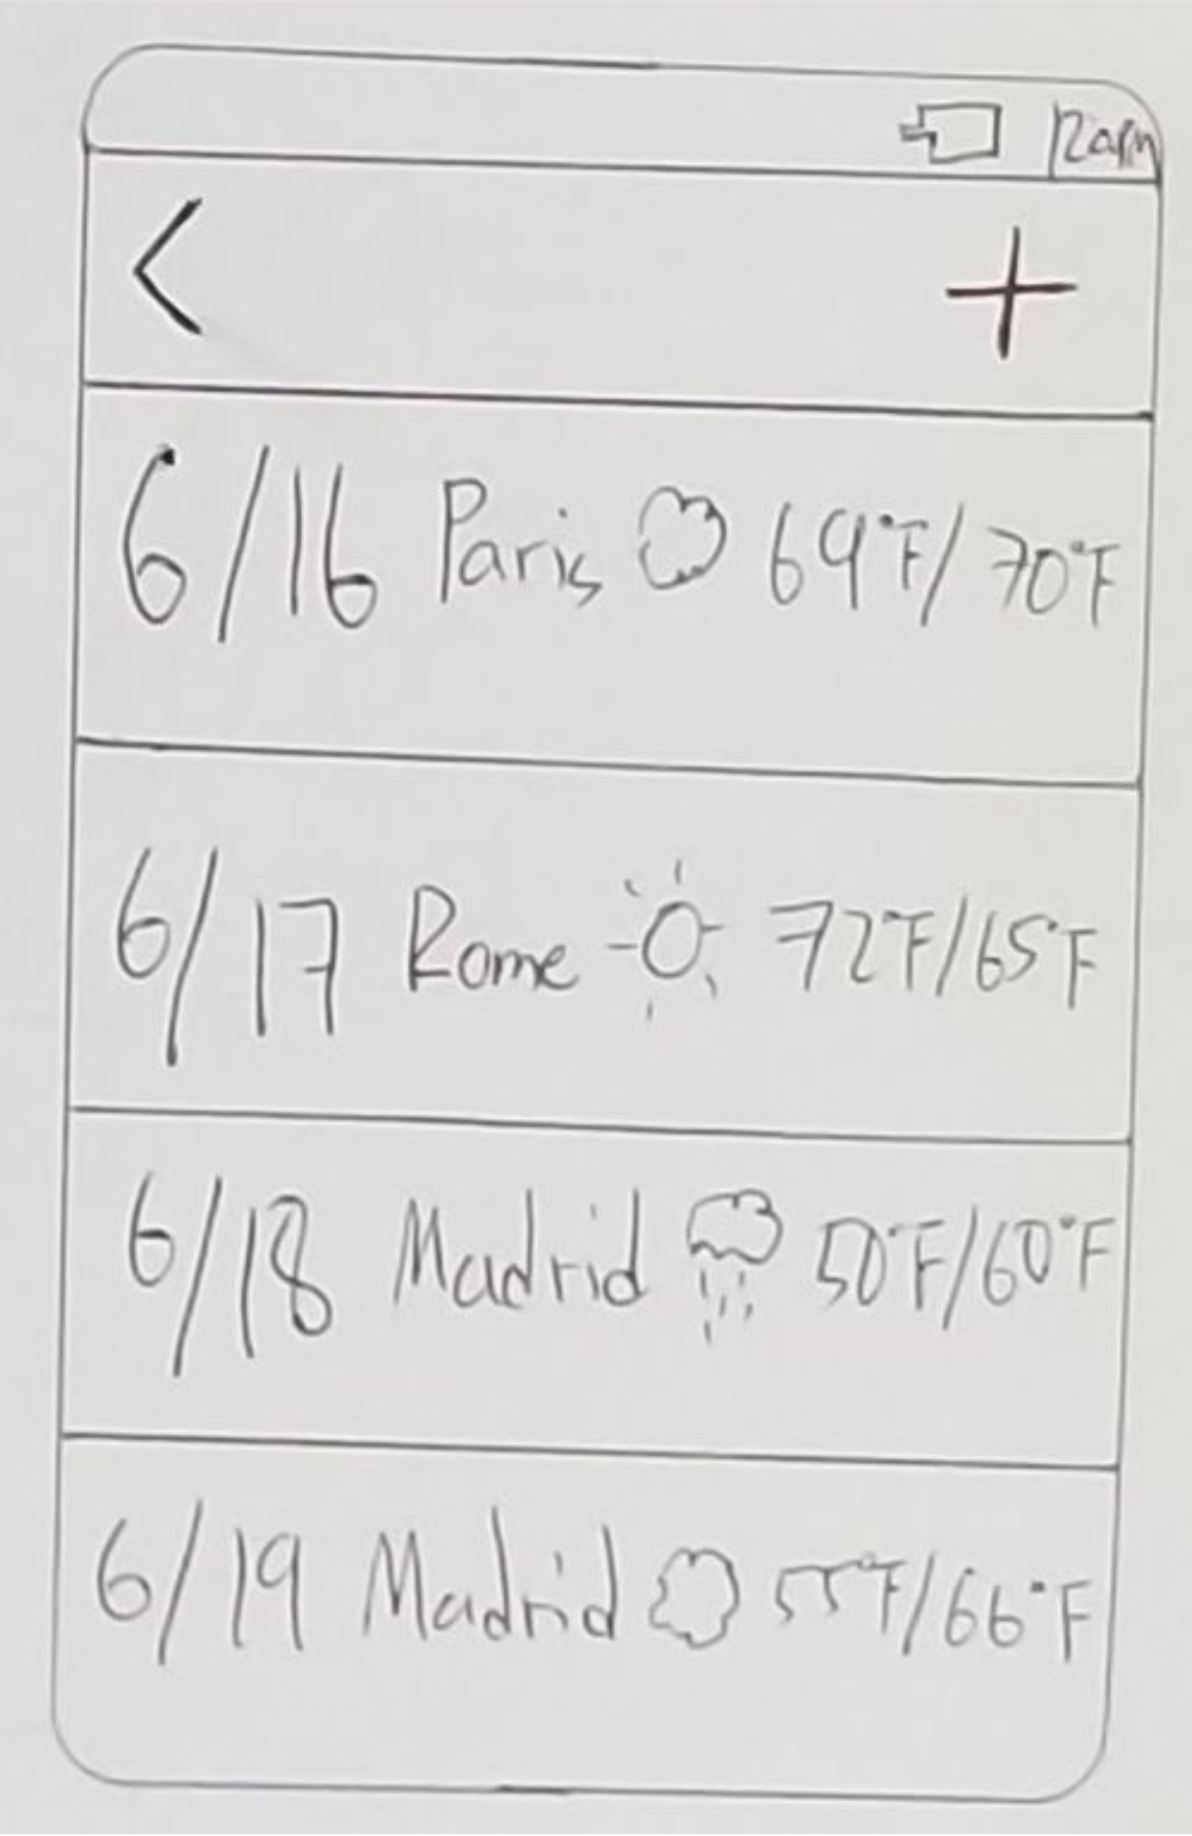 12am
<
+
6/16 Paris 69°F/70°F
6/17 Rome 72°F/65°F
6/18 Madrid 50°F/60°F
6/19 Madrid 55°F/66°F